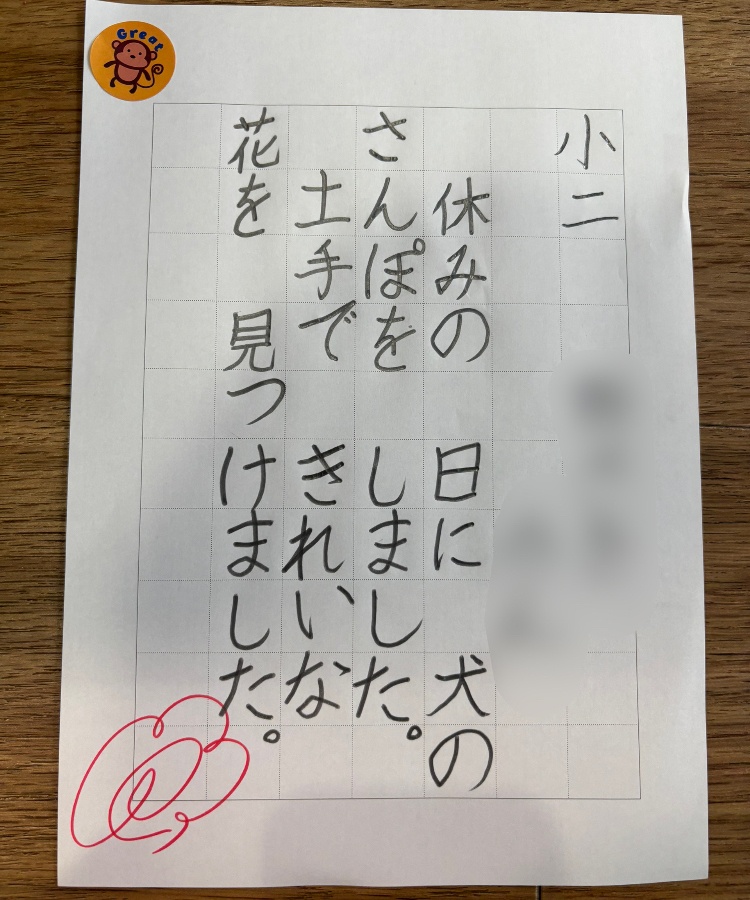 Great
小二
休みの 日に 犬の
さんぽを しました。
土手で きれいな
花を 見つけました。